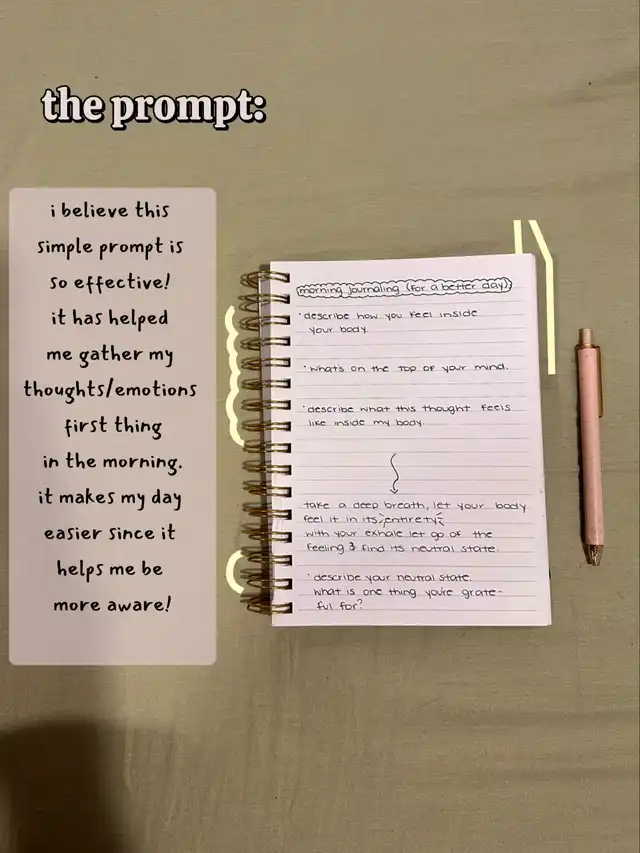 the prompt:
i believe this
simple prompt is
so effective!
it has helped
me gather my
thoughts/emotions
first thing
in the morning.
it makes my day
easier since it
helps me be
more aware!
morning journaling (for a better day):
• describe how you feel inside
your body.
• what's on the top of your mind.
• describe what this thought feels
like inside my body.
take a deep breath, let your body
feel it in its entirety
with your exhale let go of the
feeling & find its neutral state.
• describe your neutral state.
what is one thing you're grate-
ful for?